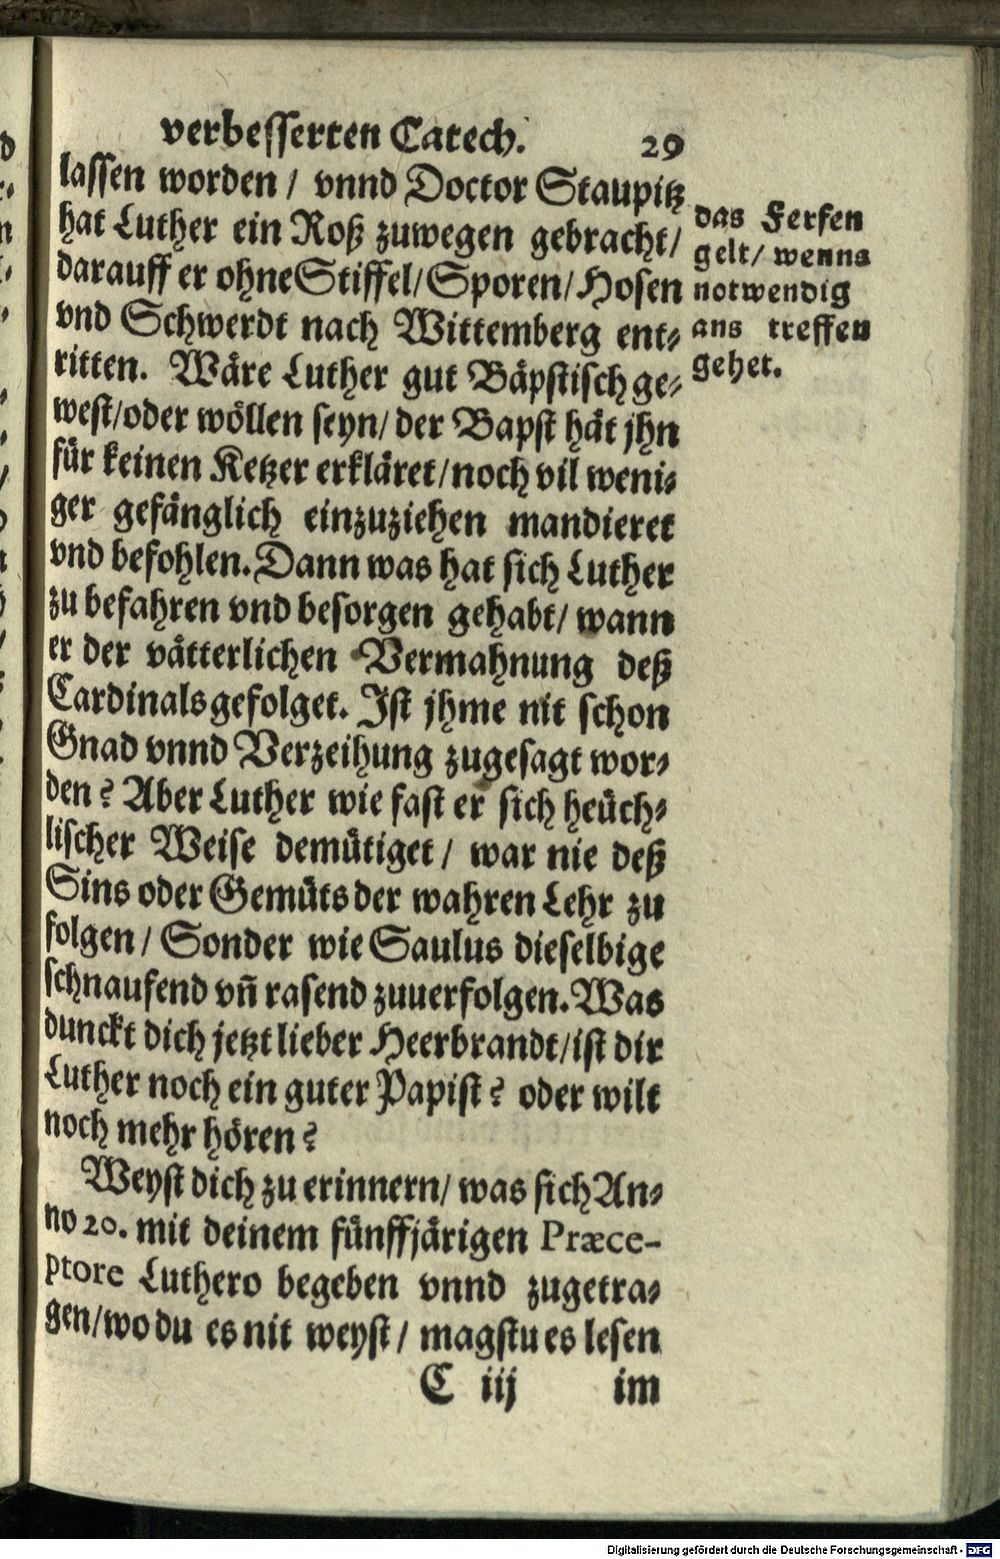 verbesserten Catech. 29
lassen worden / vnnd Doctor Staupitz
hat Luther ein Roß zuwegen gebracht /
darauff er ohne Stiffel / Sporen / Hosen
vnd Schwerdt nach Wittemberg ent⸗
ritten. Wäre Luther gut Bäpstisch ge⸗
west / oder wöllen seyn / der Bapst hät jhn
für keinen Ketzer erkläret / noch vil weni⸗
ger gefänglich einzuziehen mandieret
vnd befohlen. Dann was hat sich Luther
zu befahren vnd besorgen gehabt / wann
er der vätterlichen Vermahnung deß
Cardinals gefolget. Ist jhme nit schon
Gnad vnnd Verzeihung zugesagt wor⸗
den? Aber Luther wie fast er sich heüch⸗
lischer Weise demütiget / war nie deß
Sins oder Gemüts der wahren Lehr zu
folgen / Sonder wie Saulus dieselbige
schnaufend vñ rasend zuuerfolgen. Was
dunckt dich jetzt lieber Heerbrandt / ist dir
Luther noch ein guter Papist? oder wilt
noch mehr hören?
Weyst dich zu erinnern / was sich An⸗
no 20. mit deinem fünffjärigen Præce-
ptore Luthero begeben vnnd zugetra⸗
gen / wo du es nit weyst / magstu es lesen
C iij im
das Fersen
gelt / wenns
notwendig
ans treffen
gehet.
Digitalisierung gefördert durch die Deutsche Forschungsgemeinschaft - DFG